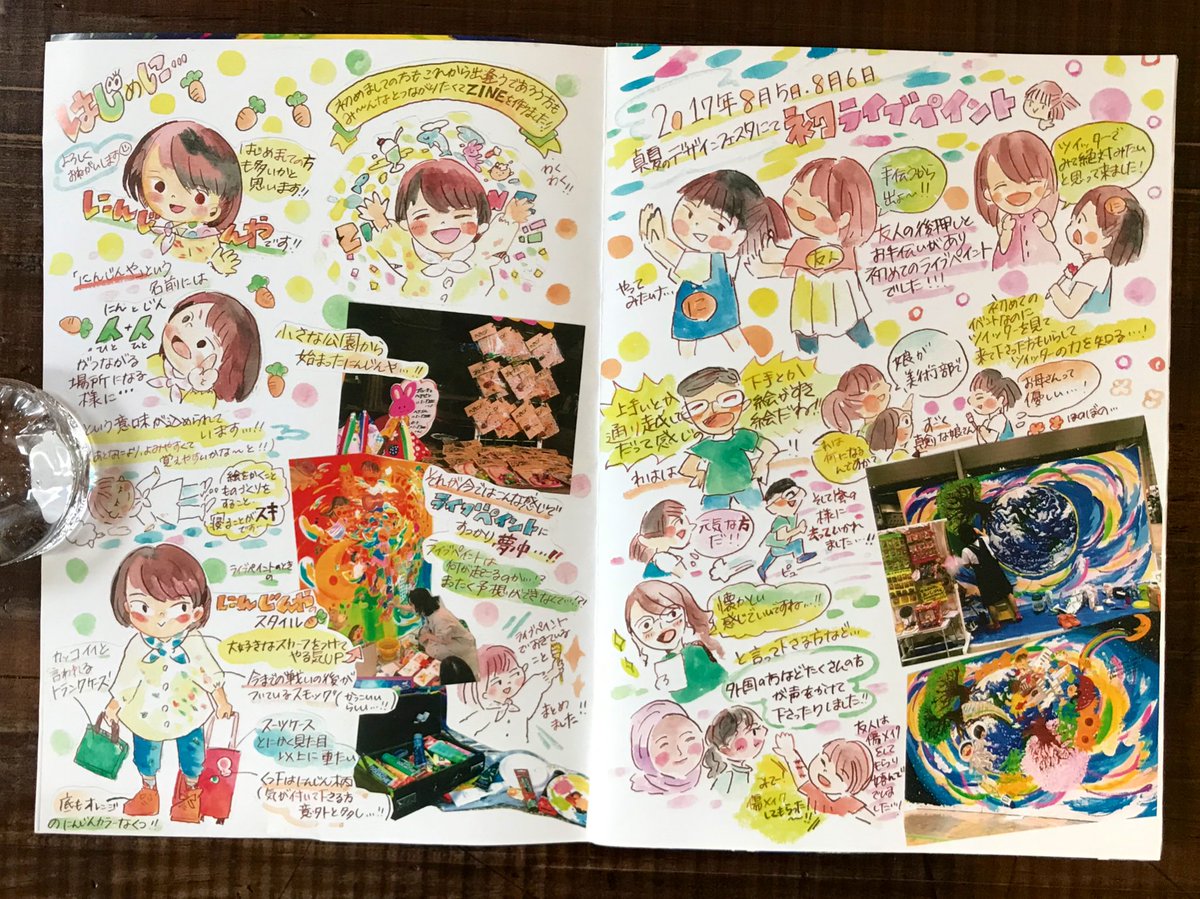 はじめに…
よろしく
おねがいします
はじめましての方
も多いかと
思います!!
にんじんや
です!!
初めましての方もこれから出逢うであろう方も
み〜んなとつながりたくてZINEを作りました!
わく
わく!!
「にんじんや」という
名前には
にんとじん
人+人
ひと ひと
がつながる
場所になる
様に…
という意味が込められて
います…!!
小さな公園から
始まったにんじんや…!!
絵をかくこと
ものづくりを
すること
寝ることがスキ
です
それが今ではこんな感じ!!
ライブペイントに
すっかり夢中…!!
ライブペイントは
ライブペイントのときの
にんじんや
スタイル
大好きなスカーフをつけて
やる気UP
カッコイイと
言われる
トランクケース!
今までの戦いの後が
ついているスモック
スーツケース
とにかく見た目
以上に重たい
くつ下はにんじん柄
気が付いて下さる方
意外と多し…!!
底もオレンジ
のにんじんカラーなくつ!!
ライブペイント
でおきている
こと
まとめ
ました!!
2017年8月5日.8月6日
真夏のデザインフェスタにて
初ライブペイント
やって
みたいナ…
友人
に
手伝うから
出よぉ〜!!
友人の後押しと
お手伝いがあり
初めてのライブペイント
でした!!!
ツイッターで
みて絶対みたい
と思って来ました!
に
初めての
イベントなのに
ツイッターを見て
来て下さった方もいらして
ツイッターの力を知る…!
上手いとか
通り越して
だって感じの
下手とか
絵がすき
絵だね?!
われは
娘が
美術部で
お母さんって
優しい…!
ほのぼの…
元気な方
だ!!
そして嵐の
様に
去っていかれ
ました…!!
ピュー
懐かしい
感じでいいですね…!!
と言って下さる方など…
外国の方などたくさんの方
が声をかけて
下さったりしました!!
みて〜!
傷メイク
してもらった!!
友人は
傷メイク
をして
もらい